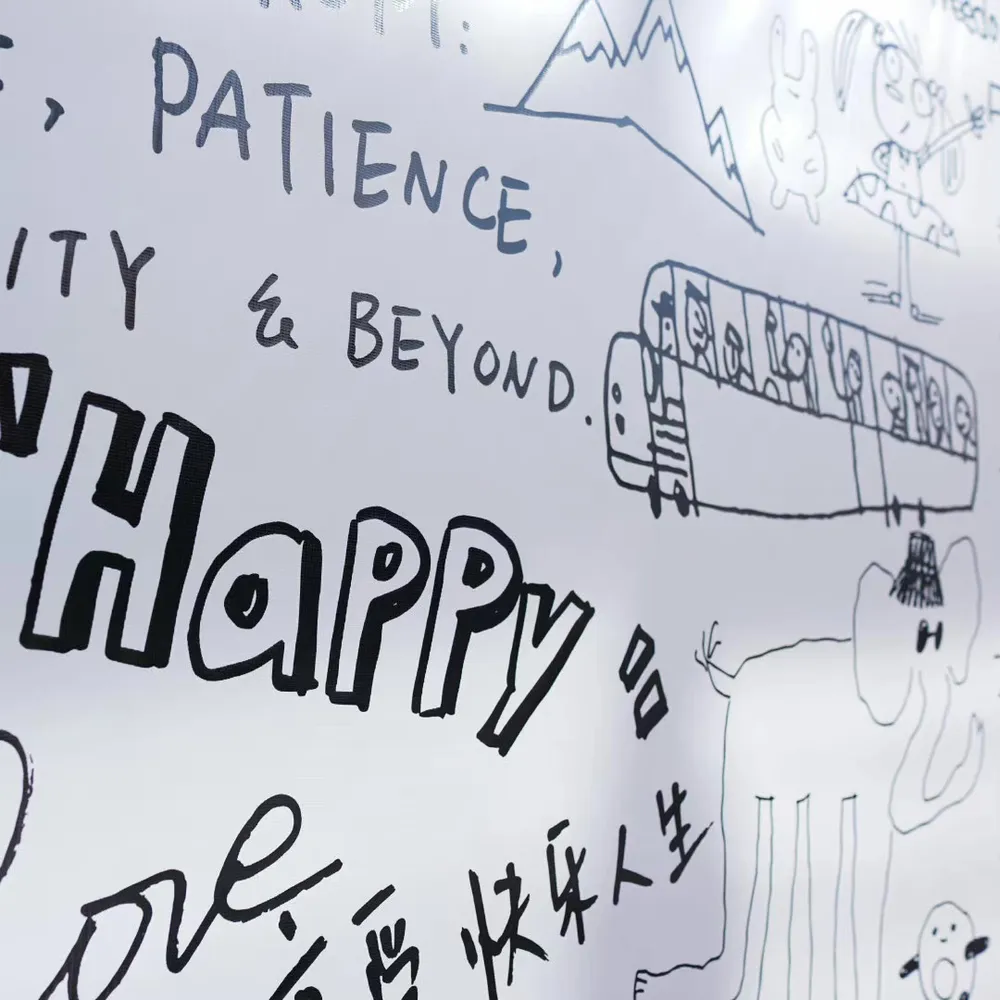 , PATIENCE,
ITY & BEYOND.
"Happy"
Love
享受快乐人生